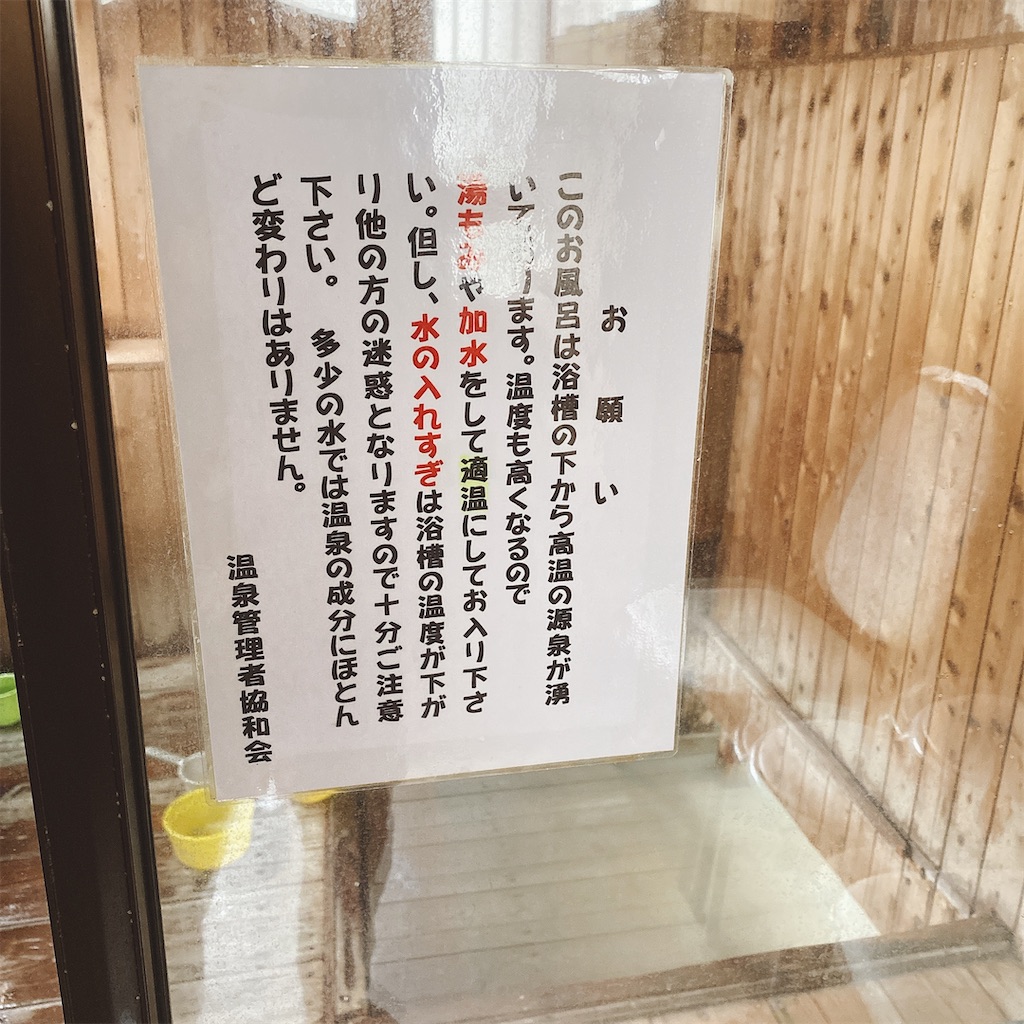 お願い
このお風呂は浴槽の下から高温の源泉が湧
いております。温度も高くなるので
湯もみや加水をして適温にしてお入り下さ
い。但し、水の入れすぎは浴槽の温度が下が
り他の方の迷惑となりますので十分ご注意
下さい。 多少の水では温泉の成分にほとん
ど変わりはありません。
温泉管理者協和会